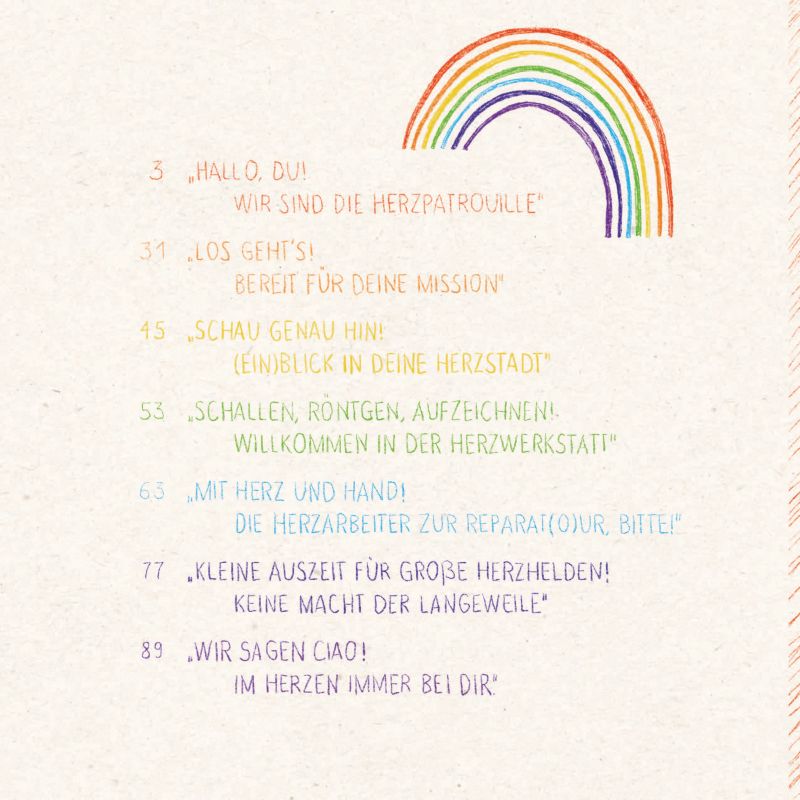 3 „HALLO, DU!
WIR SIND DIE HERZPATROUILLE“
31 „LOS GEHT'S!
BEREIT FÜR DEINE MISSION“
45 „SCHAU GENAU HIN!
(EIN)BLICK IN DEINE HERZSTADT“
53 „SCHALLEN, RÖNTGEN, AUFZEICHNEN!
WILLKOMMEN IN DER HERZWERKSTATT“
63 „MIT HERZ UND HAND!
DIE HERZARBEITER ZUR REPARAT(O)UR, BITTE!“
77 „KLEINE AUSZEIT FÜR GROßE HERZHELDEN!
KEINE MACHT DER LANGEWEILE“
89 „WIR SAGEN CIAO!
IM HERZEN IMMER BEI DIR“